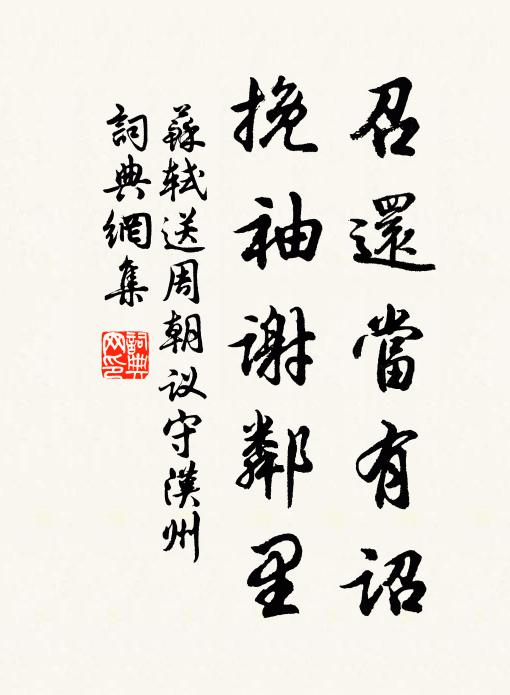 召還當有詔
挽袖謝鄰里
蘇軾送周朝议守漢州
詞典網集
詞典
网印